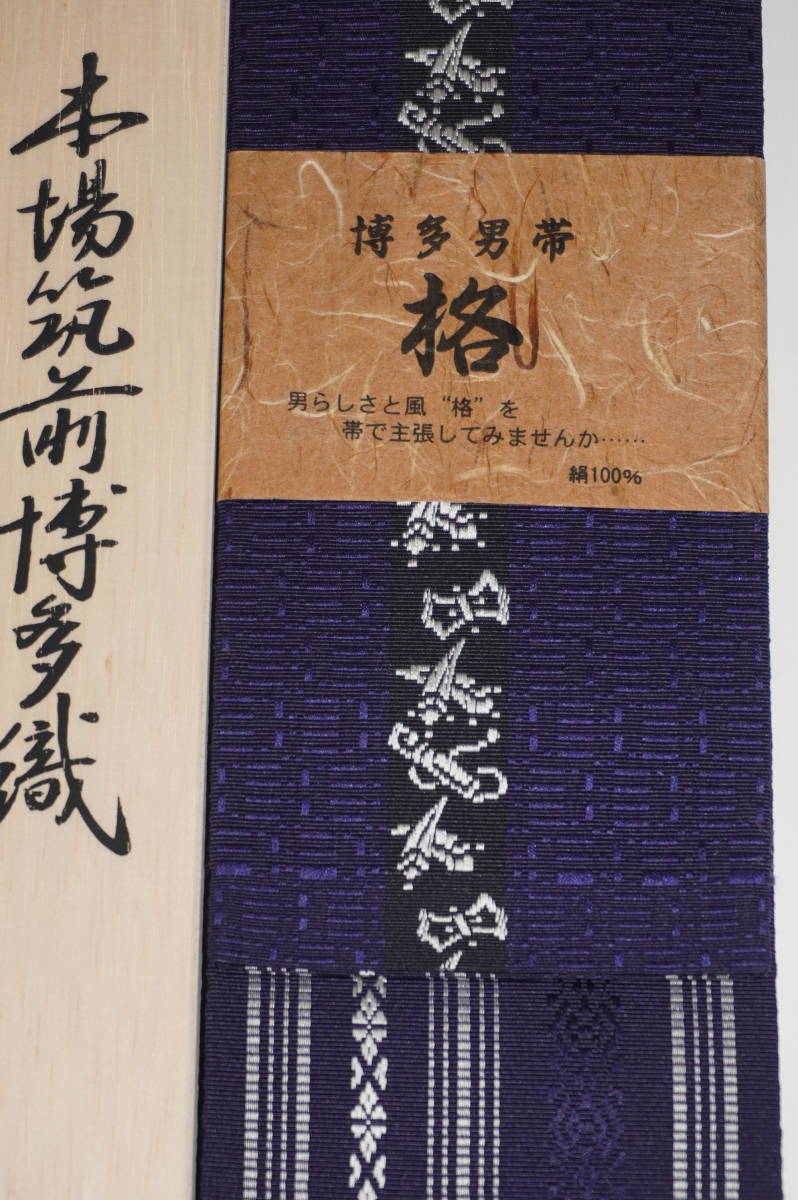 本場筑前博多織
博多男帯
格
男らしさと風“格”を
帯で主張してみませんか……
絹100%